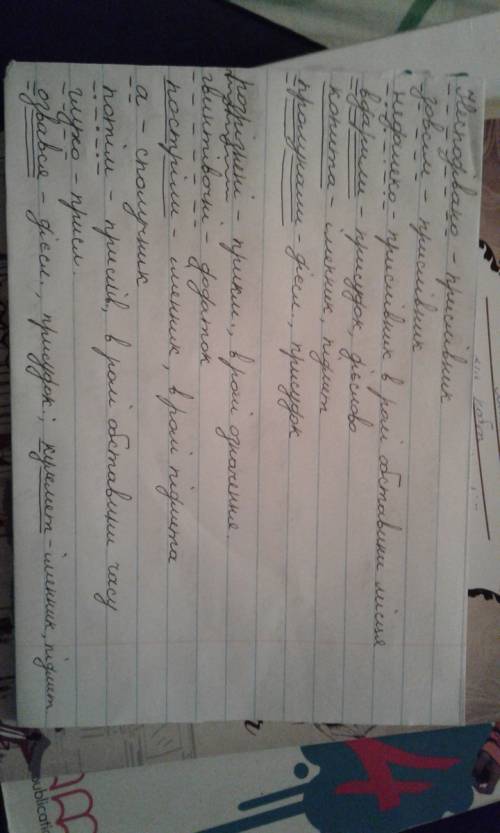 - прислівник
зовсім - прислівник
недалеко - прислівник в ролі обставини місця
вдарили - присудок, дієслово
копита - іменник, підмет
пролунали - дієсл., присудок
- прикм., в ролі означення.
- додаток
постріли - іменник, в ролі підмета
а - сполучник
потім - прислів, в ролі обставини часу
глухо - присл.
озвався - дієсл., присудок, кулемет - іменник, підмет
4